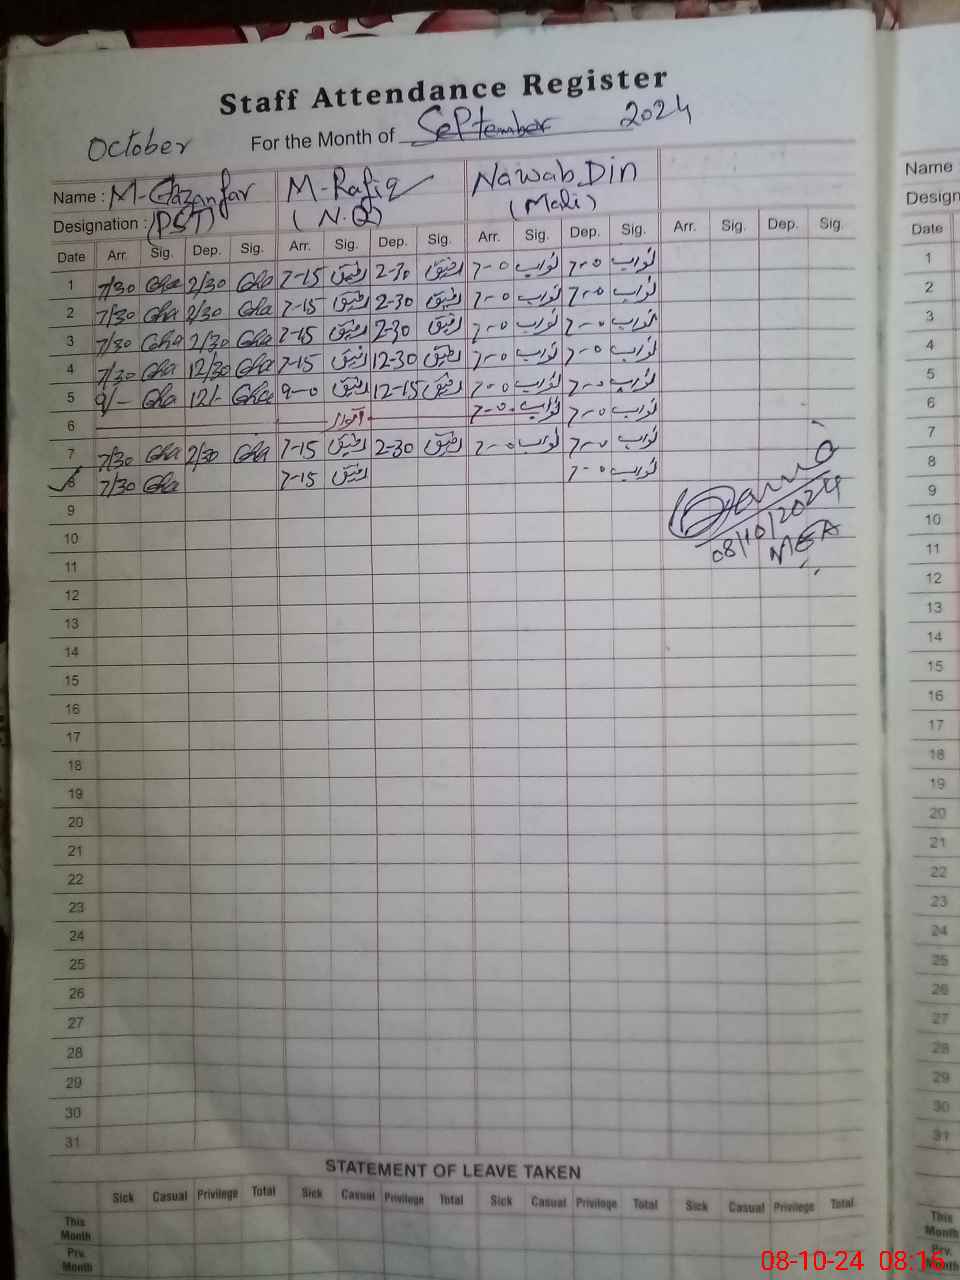 Staff Attendance Register
October For the Month of September 2024
Name : M-Ghazanfar M-Rafiq Nawab Din
Designation : (PST) (N.Q) (Mali)
Date Arr. Sig. Dep. Sig. Arr. Sig. Dep. Sig. Arr. Sig. Dep. Sig. Arr. Sig. Dep. Sig.
1 7/30 Gha 2/30 Gha 7-15 رفیق 2-30 رفیق 7-0 نواب 7-0 نواب
2 7/30 Gha 2/30 Gha 7-15 رفیق 2-30 رفیق 7-0 نواب 7-0 نواب
3 7/30 Gha 2/30 Gha 7-15 رفیق 2-30 رفیق 7-0 نواب 7-0 نواب
4 7/30 Gha 12/30 Gha 7-15 رفیق 12-30 رفیق 7-0 نواب 7-0 نواب
5 9/- Gha 12/- Gha 9-0 رفیق 12-15 رفیق 7-0 نواب 7-0 نواب
6 اتوار 7-0 نواب 7-0 نواب
7 7/30 Gha 2/30 Gha 7-15 رفیق 2-30 رفیق 7-0 نواب 7-0 نواب
8 7/30 Gha 7-15 رفیق 7-0 نواب
9
10 08/10/2024
11 MEA
12
13
14
15
16
17
18
19
20
21
22
23
24
25
26
27
28
29
30
31
STATEMENT OF LEAVE TAKEN
Sick Casual Privilege Total Sick Casual Privilege Total Sick Casual Privilege Total Sick Casual Privilege Total
This Month
Prv. Month
Name
Design
Date
1
2
3
4
5
6
7
8
9
10
11
12
13
14
15
16
17
18
19
20
21
22
23
24
25
26
27
28
29
30
31
This Month
Prv. Month
08-10-24 08:16